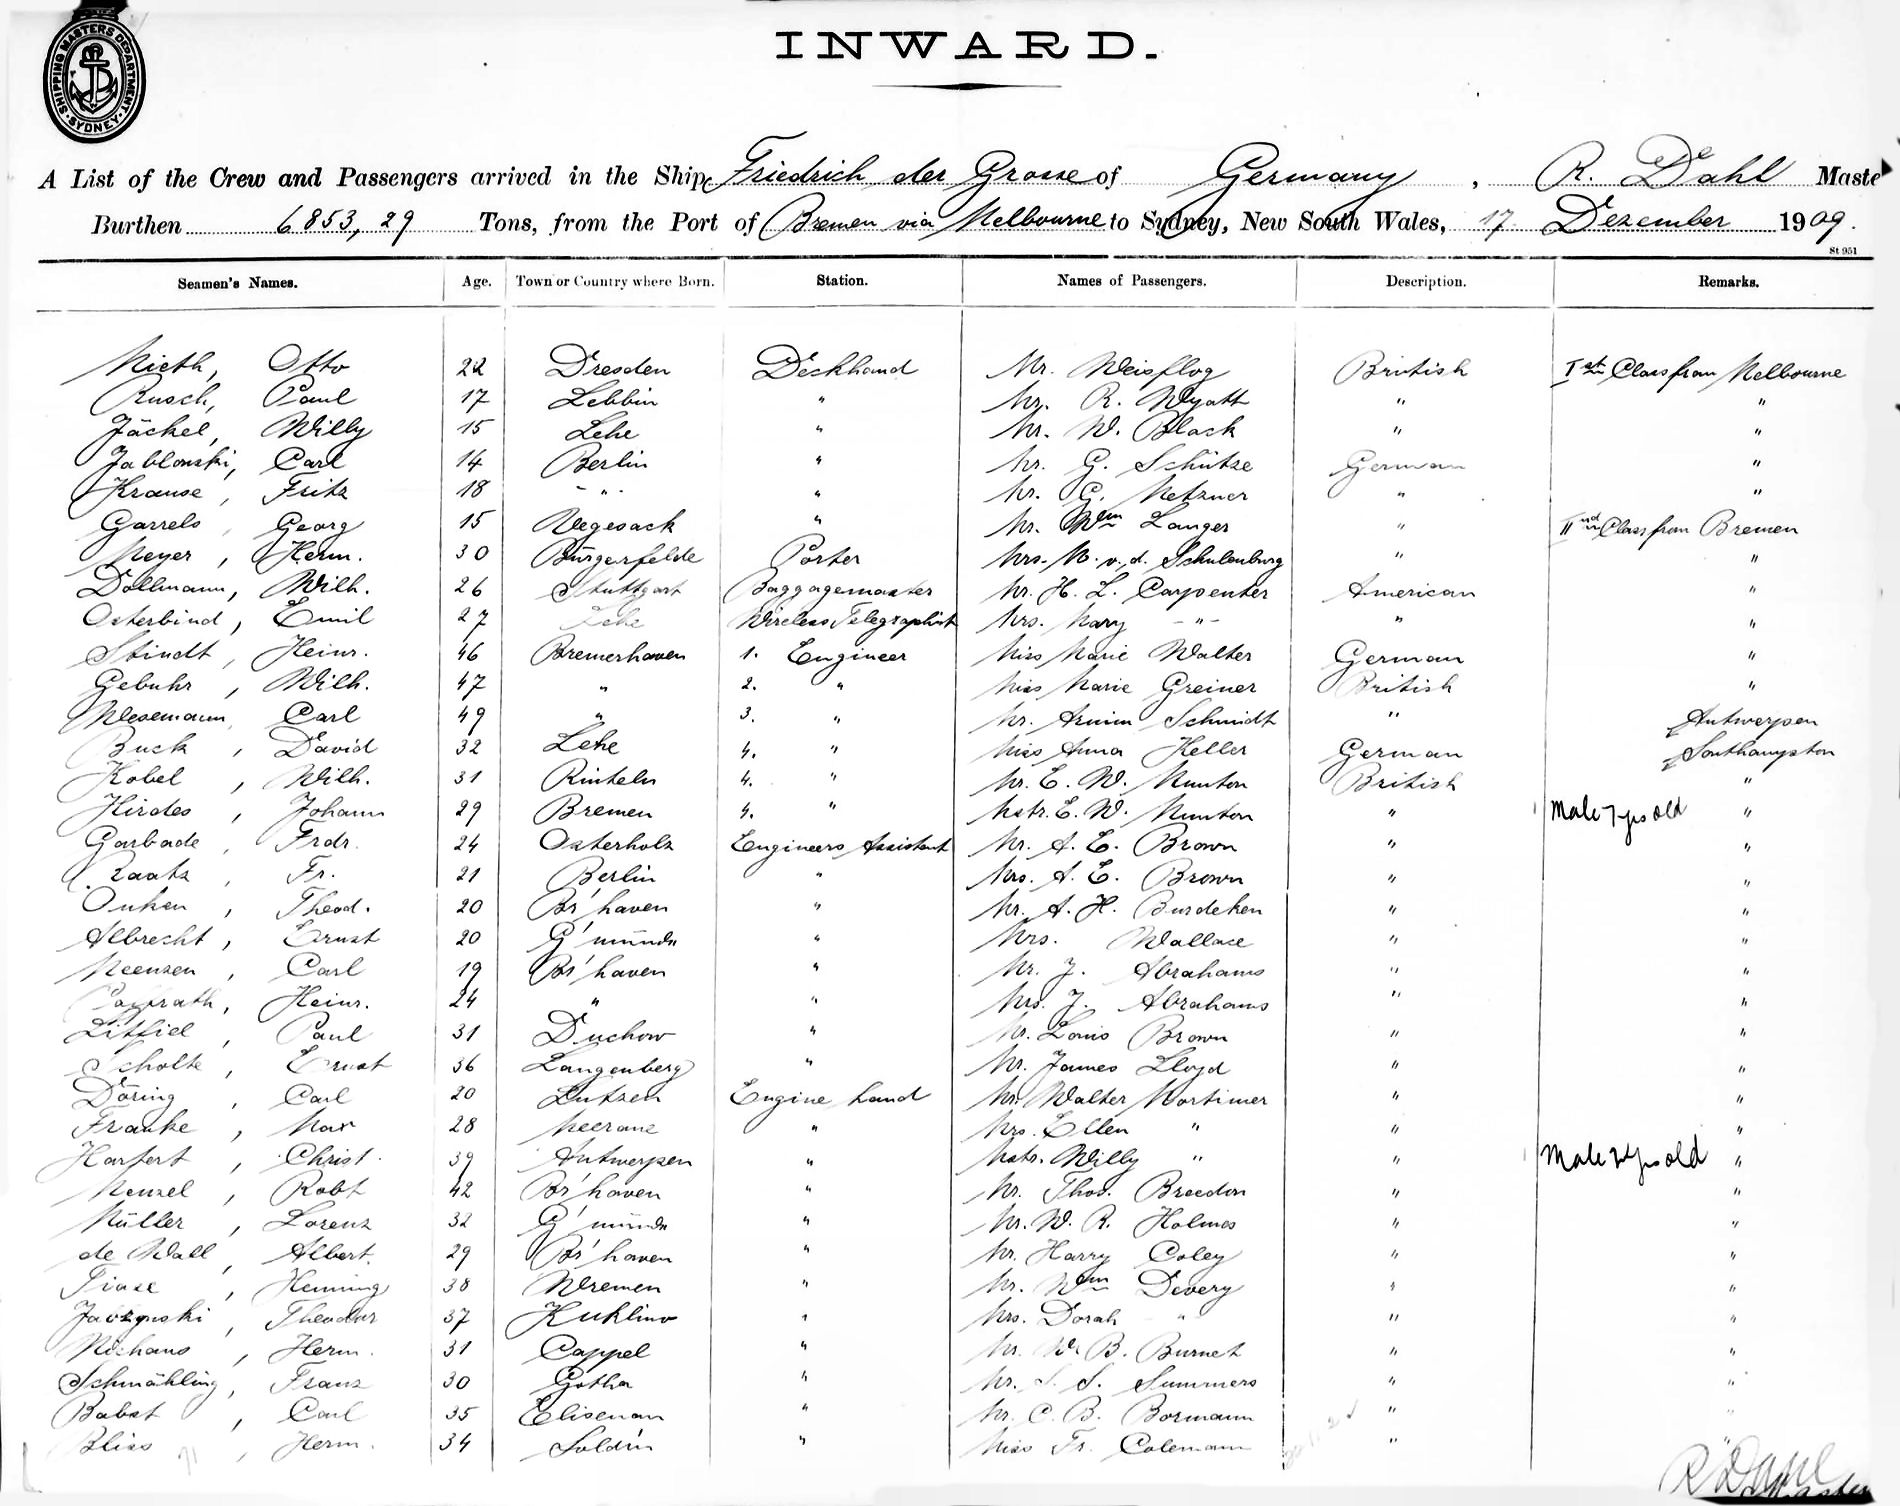 SHIPPING MASTERS DEPARTMENT. SYDNEY.
INWARD.
A List of the Crew and Passengers arrived in the Ship Friedrich der Grosse of Germany, R. Dahl Maste
Burthen 6853,29 Tons, from the Port of Bremen via Melbourne to Sydney, New South Wales, 17. Dezember 1909.
St 951
Seamen's Names. Age. Town or Country where Born. Station. Names of Passengers. Description. Remarks.
Nieth, Otto 22 Dresden Deckhand Mr. Weisflog British Ist Class from Melbourne
Rusch, Paul 17 Lebbin " Mr. R. Wyatt " "
Jäckel, Willy 15 Lehe " Mr. W. Black " "
Jablonski, Carl 14 Berlin " Mr. G. Schütze German "
Krause, Fritz 18 " " Mr. G. Metzner " "
Garrels, Georg 15 Vegesack " Mr. Wm Langer " IInd Class from Bremen
Meyer, Herm. 30 Bürgerfelde Porter Mrs. M. v. d. Schulenburg " "
Dollmann, Wilh. 26 Stuttgart Baggagemaster Mr. H. L. Carpenter American "
Osterbind, Emil 27 Lehe Wireless Telegraphist Mrs. Mary " " "
Stindt, Heinr. 46 Bremerhaven 1. Engineer Miss Marie Walter German "
Gebuhr, Wilh. 47 " 2. " Miss Marie Greiner British "
Wesemann, Carl 49 " 3. " Mr. Armin Schmidt " " Antwerpen
Buck, David 32 Lehe 4. " Miss Anna Heller German " Southampton
Kobel, Wilh. 31 Rinteln 4. " Mr. E. W. Nunton British "
Hirdes, Johann 29 Bremen 4. " Mstr. E. W. Nunton " Male 7 yrs old "
Garbade, Frdr. 24 Osterholz Engineers Assistent Mr. A. E. Brown " "
Raatz, Fr. 21 Berlin " Mrs. A. E. Brown " "
Onken, Theod. 20 Br'haven " Mr. A. H. Burdeken " "
Albrecht, Ernst 20 G'münde " Mrs. Wallace " "
Meensen, Carl 19 Br'haven " Mr. J. Abrahams " "
Heinr. 24 " " Mrs. J. Abrahams " "
Litfiel, Paul 31 Duchow " Mr. Louis Brown " "
Scholte, Ernst 36 Langenberg " Mr. James Lloyd " "
Döring, Carl 20 Lutzen Engine hand Mr. Walter Mortimer " "
Franke, Max 28 Meerane " Mrs. Ellen " " "
Harfert, Christ. 39 Antwerpen " Mstr. Willy " " Male yrs old "
Menzel, Robt 42 Br'haven " Mr. Thos. Breedon " "
Müller, Lorenz 32 G'münde " Mr. W. R. Holmes " "
de Wall, Albert. 29 Br'haven " Mr. Harry Coley " "
Tiase, Henning 38 Wremen " Mr. Wm Devery " "
Theodor 37 Kuklino " Mrs. Dorah " " "
Niehaus, Herm. 31 Cappel " Mr. W. B. Burnet " "
Schmähling, Franz 30 Gotha " Mr. S. S. Summers " "
Babst, Carl 35 Elisenau " Mr. C. B. Bormann " "
Bliss, Herm. 34 Soldin " Miss Fr. Colemann " "
R Dahl
Master